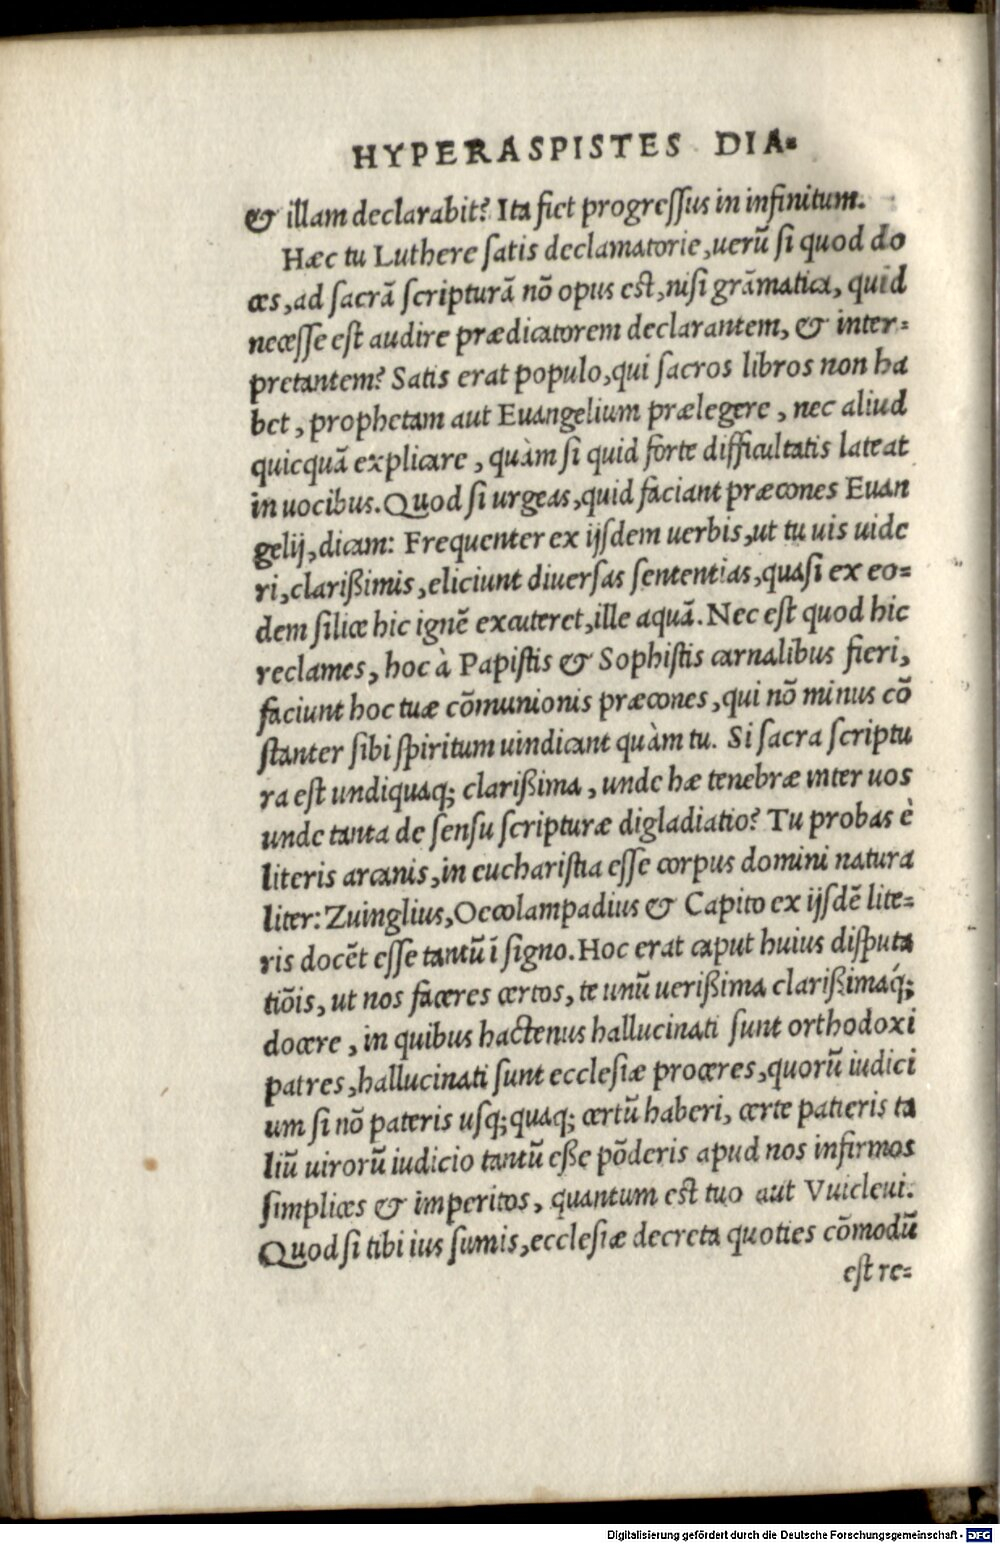 HYPERASPISTES DIA=
& illam declarabit? Ita fiet progressus in infinitum.
Hæc tu Luthere satis declamatorie, uerũ si quod do
ces, ad sacrã scripturã nõ opus est, nisi grãmatica, quid
necesse est audire prædicatorem declarantem, & inter=
pretantem? Satis erat populo, qui sacros libros non ha
bet, prophetam aut Euangelium prælegere, nec aliud
quicquã explicare, quàm si quid forte difficultatis lateat
in uocibus. Quod si urgeas, quid faciant præcones Euan
gelij, dicam: Frequenter ex ijsdem uerbis, ut tu uis uide
ri, clarißimis, eliciunt diuersas sententias, quasi ex eo=
dem silice hic ignẽ excuteret, ille aquã. Nec est quod hic
reclames, hoc à Papistis & Sophistis carnalibus fieri,
faciunt hoc tuæ cõmunionis præcones, qui nõ minus cõ
stanter sibi spiritum uindicant quàm tu. Si sacra scriptu
ra est undiquaq; clarißima, unde hæ tenebræ inter uos
unde tanta de sensu scripturæ digladiatio? Tu probas è
literis arcanis, in eucharistia esse corpus domini natura
liter: Zuinglius, Oecolampadius & Capito ex ijsdẽ lite=
ris docẽt esse tantũ ĩ signo. Hoc erat caput huius disputa
tiõis, ut nos faceres certos, te unũ uerißima clarißimaq́;
docere, in quibus hactenus hallucinati sunt orthodoxi
patres, hallucinati sunt ecclesiæ proceres, quorũ iudici
um si nõ pateris usq;quaq; certũ haberi, certe patieris ta
liũ uirorũ iudicio tantũ eße põderis apud nos infirmos
simplices & imperitos, quantum est tuo aut Vuicleui.
Quod si tibi ius sumis, ecclesiæ decreta quoties cõmodũ
est re=
Digitalisierung gefördert durch die Deutsche Forschungsgemeinschaft - DFG